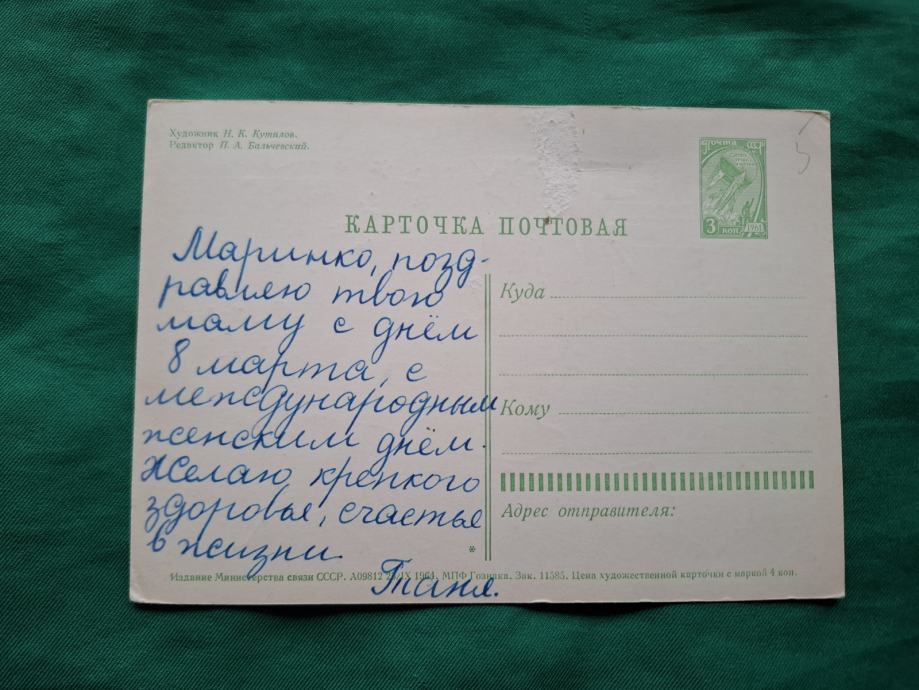 Художник Н. К. Кутилов.
Редактор П. А. Бальчевский.
ПОЧТА СССР
3 коп
1961
5
КАРТОЧКА ПОЧТОВАЯ
Маринко, позд-
равляю твою
маму с днём
8 марта, с
международным
женским днём.
Желаю крепкого
здоровья, счастье
в жизни
Таня.
Куда
Кому
Адрес отправителя:
*
Издание Министерства связи СССР. А09812 IX 1964. МПФ Гознака. Зак. 11585. Цена художественной карточки с маркой 4 коп.